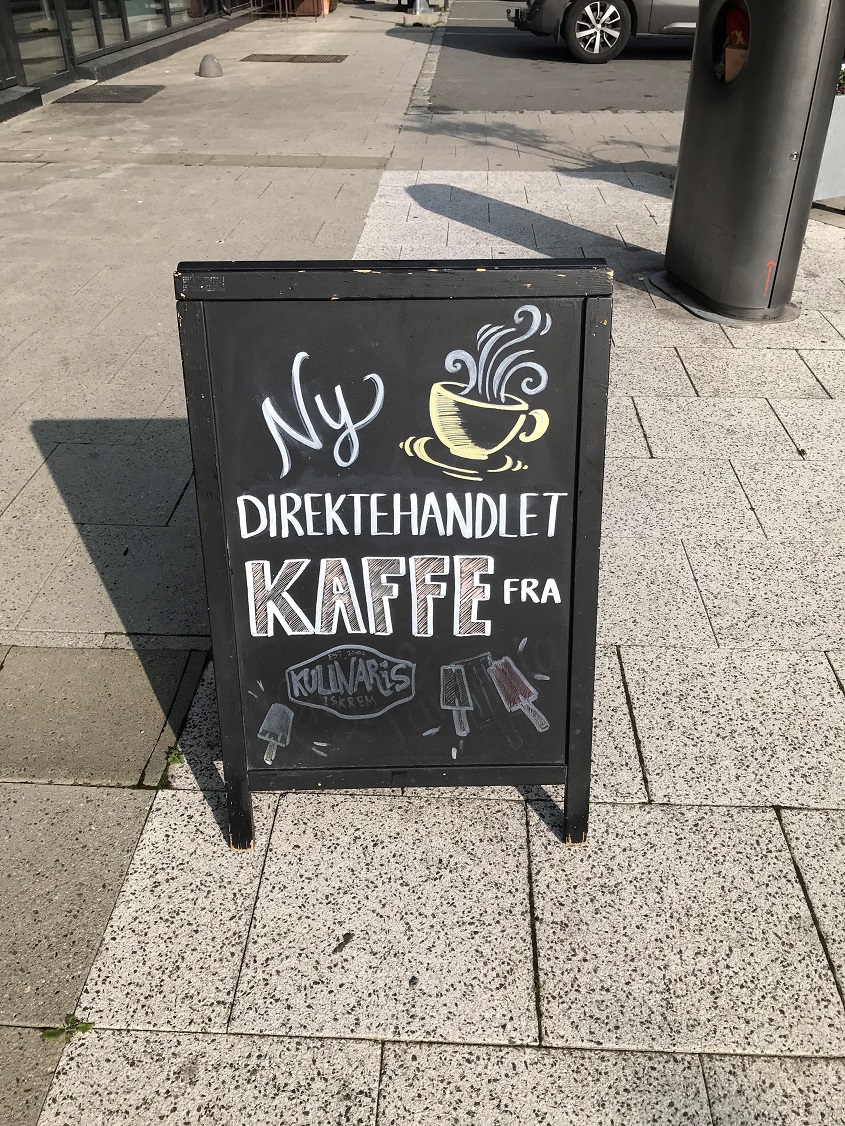 Ny
DIREKTEHANDLET
KAFFE FRA
EST. 2001
KULINARIS
ISKREM